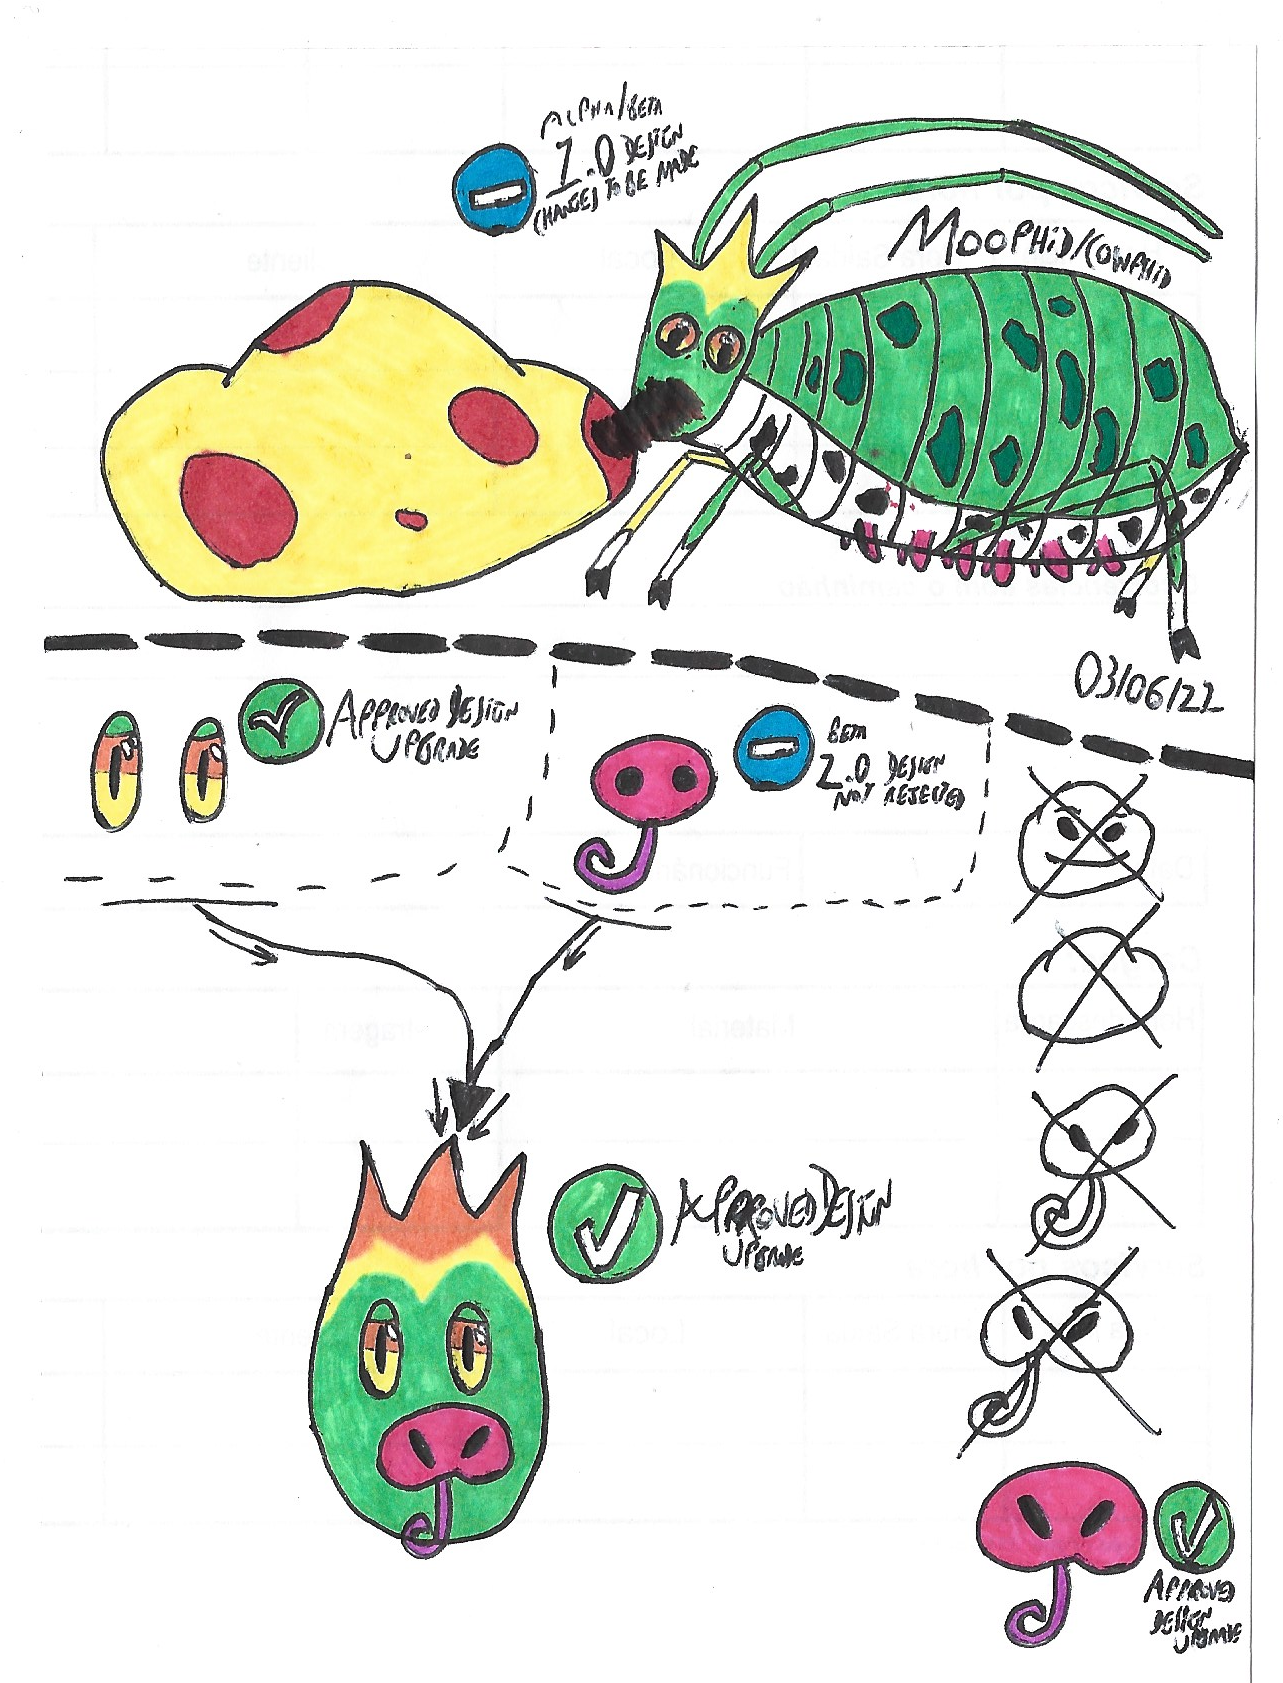 ALPHA/BETA
1.0 DESIGN
CHANGES TO BE MADE
MOOPHID/COWPHID
03/06/22
APPROVED DESIGN
UPGRADE
BETA
2.0 DESIGN
NOT REJECTED
APPROVED DESIGN
UPGRADE
APPROVED
DESIGN
UPGRADE